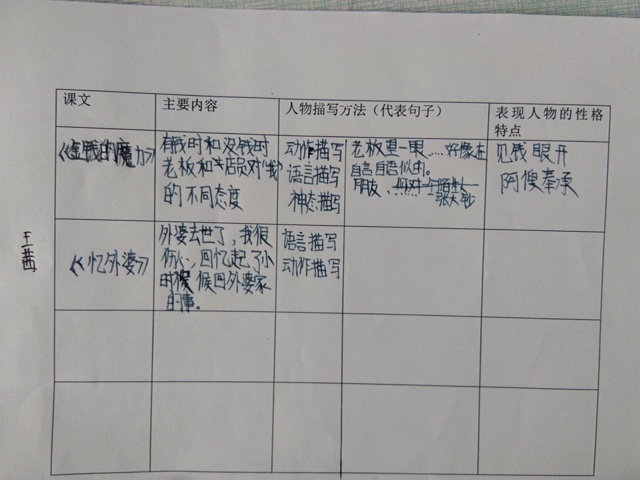 课文
主要内容
人物描写方法（代表句子）
表现人物的性格
特点
《金钱的魔力》
有钱时和没钱时
老板和店员对“我”
的不同态度
动作描写
语言描写
神态描写
老板望一眼……好像在
自言自语似的。
朋友，
见钱眼开
阿谀奉承
《忆外婆》
外婆去世了，我很
伤心，回忆起了小
时候候回外婆家
的事。
语言描写
动作描写
王茜